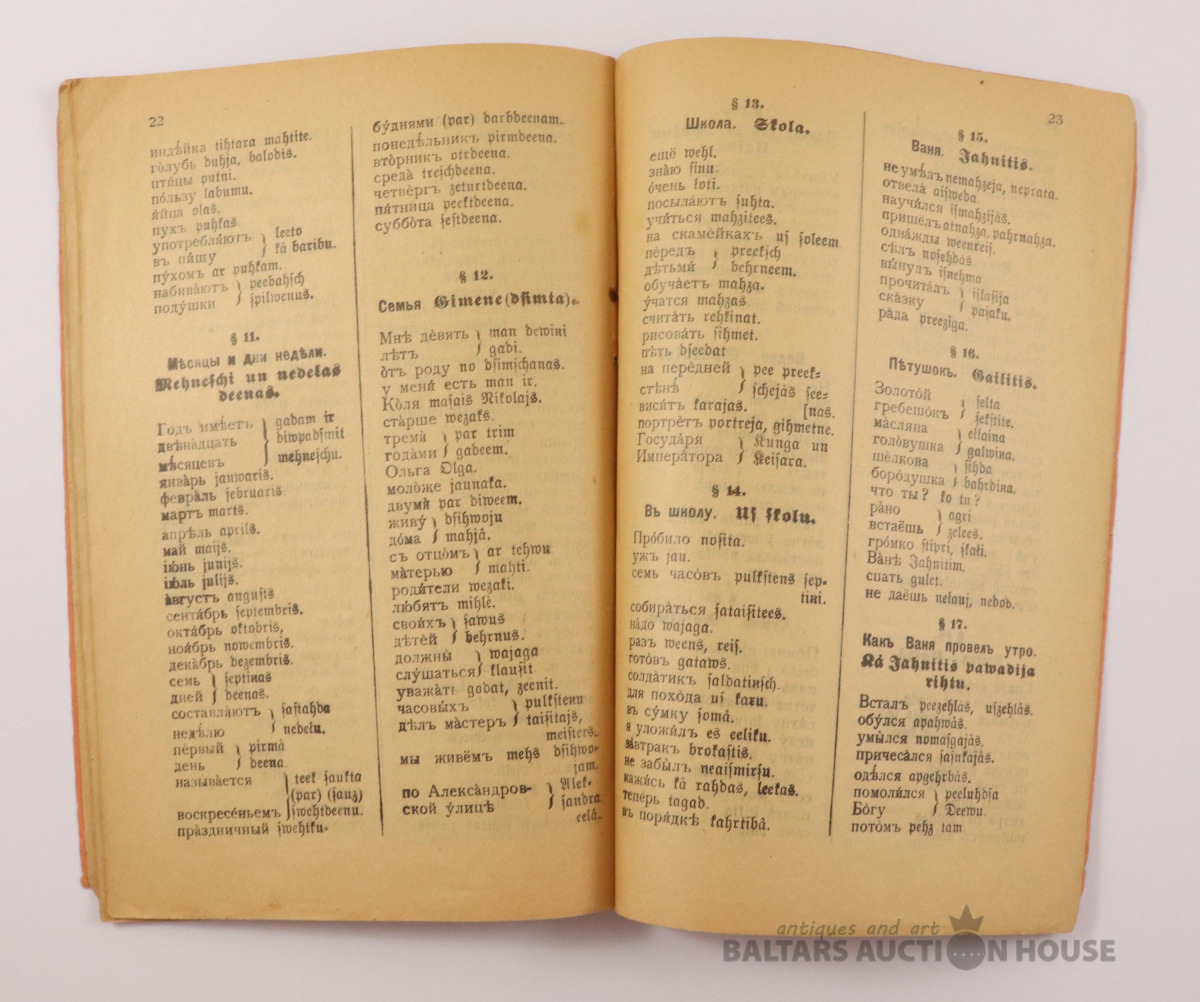 22
индѣ́йка tihtara mahtite.
го̀лубь duhja, balodis.
пти́цы putni.
по́льзу labumu.
я́йца olas.
пухъ puhkas.
употребля́ютъ } leeto
въ пи́щу } kà baribu.
пу́хомъ ar puhkam.
набива́ютъ } peebahſch
поду́шки } ſpilwenus.
§ 11.
Мѣсяцы и дни недѣли.
Mehneſchi un nedełas
deenas.
Годъ имѣ́етъ } gadam ir
двѣна́дцать } diwpadſmit
мѣ́сяцевъ } mehneſchu.
янва̀рь janwaris.
февра̀ль februaris.
мартъ marts.
апрѣ̀ль aprils.
май maijs.
ію́нь junijs.
ію́ль julijs.
а́вгустъ auguſts
сентя́брь ſeptembris.
октя́брь oktobris,
ноя́брь nowembris.
дека̀брь dezembris.
семь } ſeptinas
дней } deenas.
составля́ютъ } ſaſtahda
недѣ́лю } nedełu.
пе́рвый } pirmà
день } deena
называ́ется } teek ſaukta
(par) (ſauz)
воскресе́ньемъ } ſwehtdeenu.
пра̀здничный ſwehtku-
бу́днями (par) darbdeenam.
понедѣ́льникъ pirmdeena.
вто̀рникъ otrdeena.
среда̀ treſchdeena.
четвѐргъ zeturtdeena.
пя́тница peektdeena.
суббо̀та ſeſtdeena.
§ 12.
Семья Gimene (dſimta).
Мнѣ дѐвять } man dewini
лѣтъ } gadi.
о̀тъ роду no dſimſchanas.
у меня́ есть man ir.
Ко̀ля maſais Nikolajs.
ста̀рше wezaks.
тремя́ } par trim
года̀ми } gadeem.
Ольга Olga.
моло̀же jaunaka.
двумя́ par diweem.
живу́ } dſihwoju
до̀ма } mahjâ.
съ отцо̀мъ } ar tehwu
ма̀терью } mahti.
роди́тели wezaki.
лю́бятъ mihlè.
свои́хъ } ſawus
дѣте́й } behrnus.
должны́ } wajaga
слу́шаться } klauſit
уважа́ть godat, zeenit.
часовы́хъ } pulkſtenu
дѣлъ ма̀стеръ } taiſitajs,
meiſters.
мы живёмъ mehs dſihwo-
jam.
по Алекса̀ндров- } Alek-
ской у́лицѣ } ſandra
eelâ.
§ 13.
Школа. Skola.
ещё wehl.
зна̀ю ſinu.
о́чень łoti.
посыла́ютъ ſuhta.
учи́ться mahzitees.
на скаме́йкахъ uſ ſoleem
пе́редъ } preekſch
дѣтьми́ } behrneem.
обуча́етъ mahza.
у́чатся mahzas
счита́ть rehkinat.
рисова́ть ſihmet.
пѣть dſeedat
на пере́дней } pee preek-
стѣнѣ́ } ſchejàs ſee-
виси́тъ karajas. [nas.
портре́тъ portreja, gihmetne.
Госуда́ря } Kunga un
Импера́тора } Keiſara.
§ 14.
Въ школу. Uſ ſkolu.
Про́било noſita.
ужъ jau.
семь часо́въ pulkſtens ſep-
tini.
собира́ться ſataiſitees.
на́до wajaga.
разъ weens, reiſ.
гото́въ gataws.
солда́тикъ ſaldatinſch.
для похо́да uſ karu.
въ су́мку ſomâ.
я уложи́лъ es eeliku.
за́втракъ brokaſtis.
не забы́лъ neaiſmirſu.
кажи́сь kà rahdas, leekas.
тепе́рь tagad.
въ поря́дкѣ kahrtibâ.
23
§ 15.
Ваня. Jahnitis.
не умѣ́лъ nemahzeja, neprata.
отвела́ aiſweda.
научи́лся iſmahzijàs.
пришёлъ atnahza, pahrnahza.
одна́жды weenreiſ.
сѣлъ noſehdàs.
вы́нулъ iſnehma
прочита́лъ } iſlaſija
ска́зку } paſaku.
ра́да preeziga.
§ 16.
Пѣтушокъ. Gailitis.
Золото́й } ſelta
гребешо́къ } ſekſtite.
ма́сляна } ełłaina
голо́вушка } galwina.
шёлкова } ſihda
боро́душка } bahrdina.
что ты? ko tu?
ра́но } agri
встаёшь } zelees.
гро́мко ſtipri, ſkałi.
Ва́нѣ Jahnitim.
спать gulet.
не даёшь nełauj, nedod.
§ 17.
Какъ Ваня провелъ утро.
Kà Jahnitis pawadija
rihtu.
Всталъ peezehlàs, uſzehlàs.
обу́лся apahwàs.
умы́лся nomaſgajàs.
причеса́лся ſaſukajàs.
одѣ́лся apgehrbàs.
помоли́лся } peeluhdſa
Бо́гу } Deewu.
пото́мъ pehz tam
antiques and art
BALTARS AUCTION HOUSE